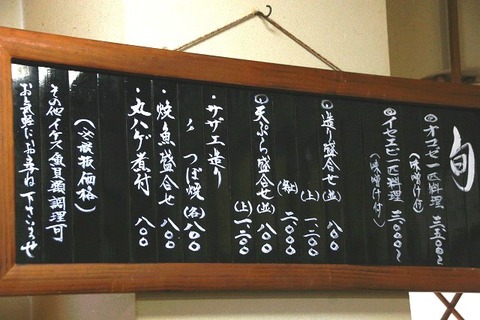 旬
①オコゼ一匹料理 三、五〇〇〜
(味噌汁付)
②イセエビ一匹料理 三、〇〇〇〜
(味噌汁付)
①造り盛合せ(並) 八〇〇
(上) 一、二〇〇
(特上) 二、〇〇〇
①天ぷら盛合せ(並) 八〇〇
(上) 一、二〇〇
・サザエ造り
〃 つぼ焼(各) 八〇〇
・焼魚盛合せ 八〇〇
・丸ハゲ煮付 八〇〇
(必税抜価格)
その他イケス魚貝類調理可
お気軽にお尋ね下さいませ